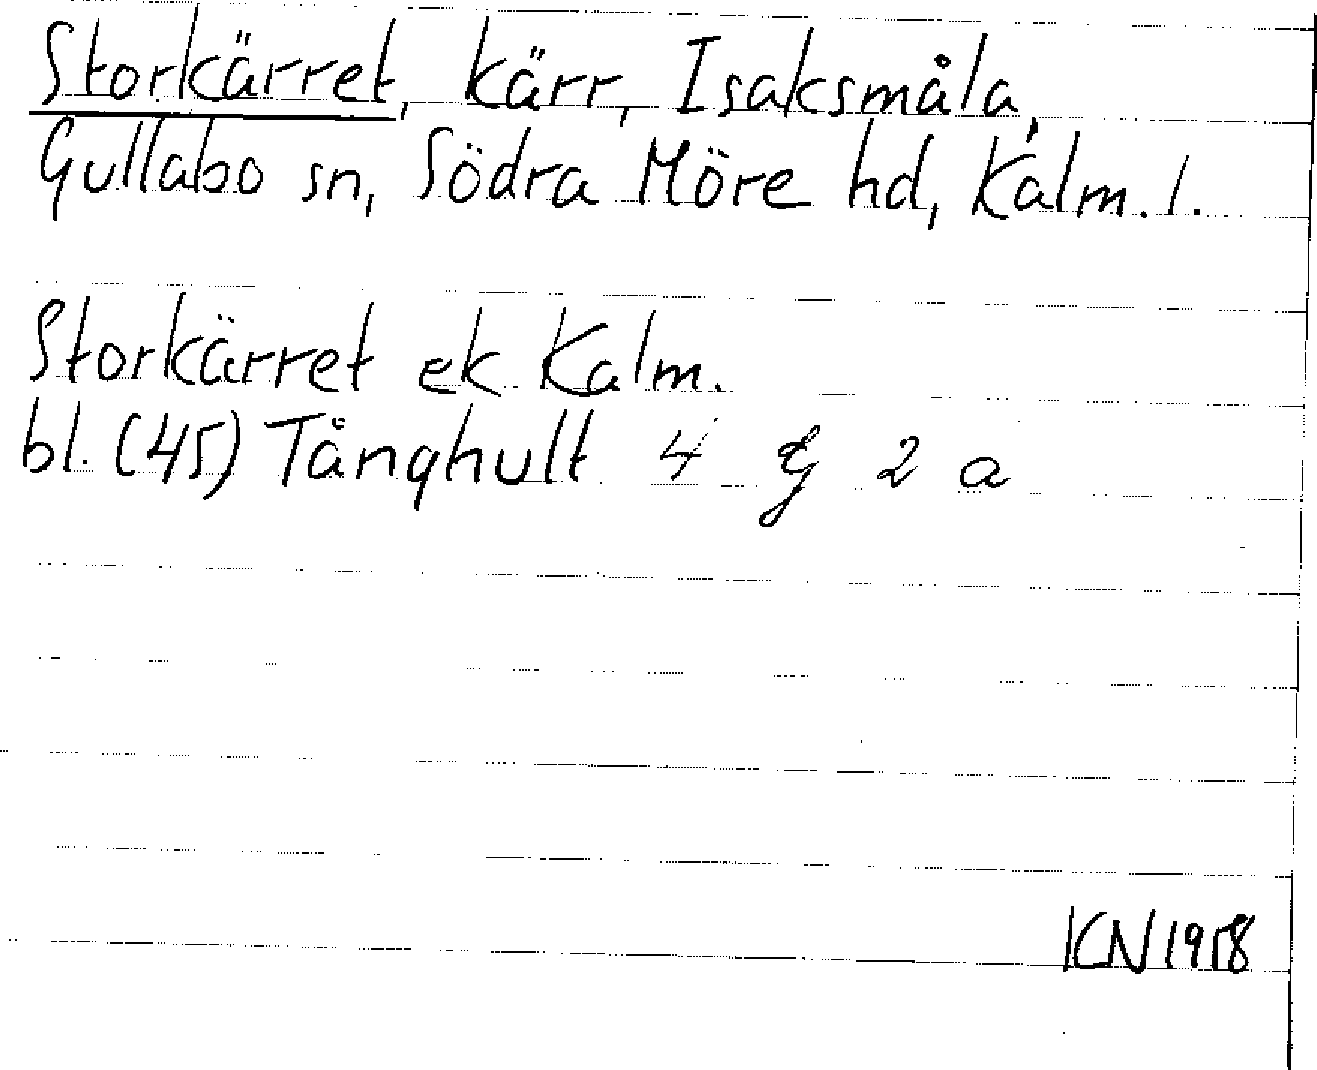 Storkärret, kärr, Isaksmåla,
Gullabo sn, Södra Möre hd, Kalm. l.
Storkärret ek Kalm.
bl. (45) Tånghult 4 G 2 a
KN 1958